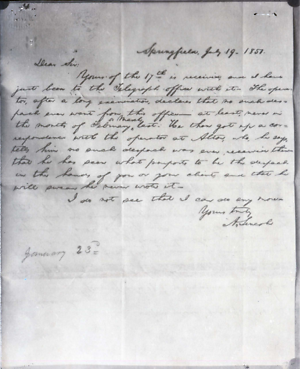 Springfield, July 19. 1851.
Dear Sir:
Yours of the 17th is received and I have
just been to the Telegraph office with it. The opera-
tor, after a long examination declares that no such des-
pach ever went from this office, at least, never in
the month of February last. He then got up a cor-
respondence with the operator at Alton, who he says
tells him no such despach was ever received there
that he has seen what purports to be the despach
in the hands of you or your client and that he
will swear he never wrote it.
I do not see that I can do any more
Yours truly
A. Lincoln
January 23rd